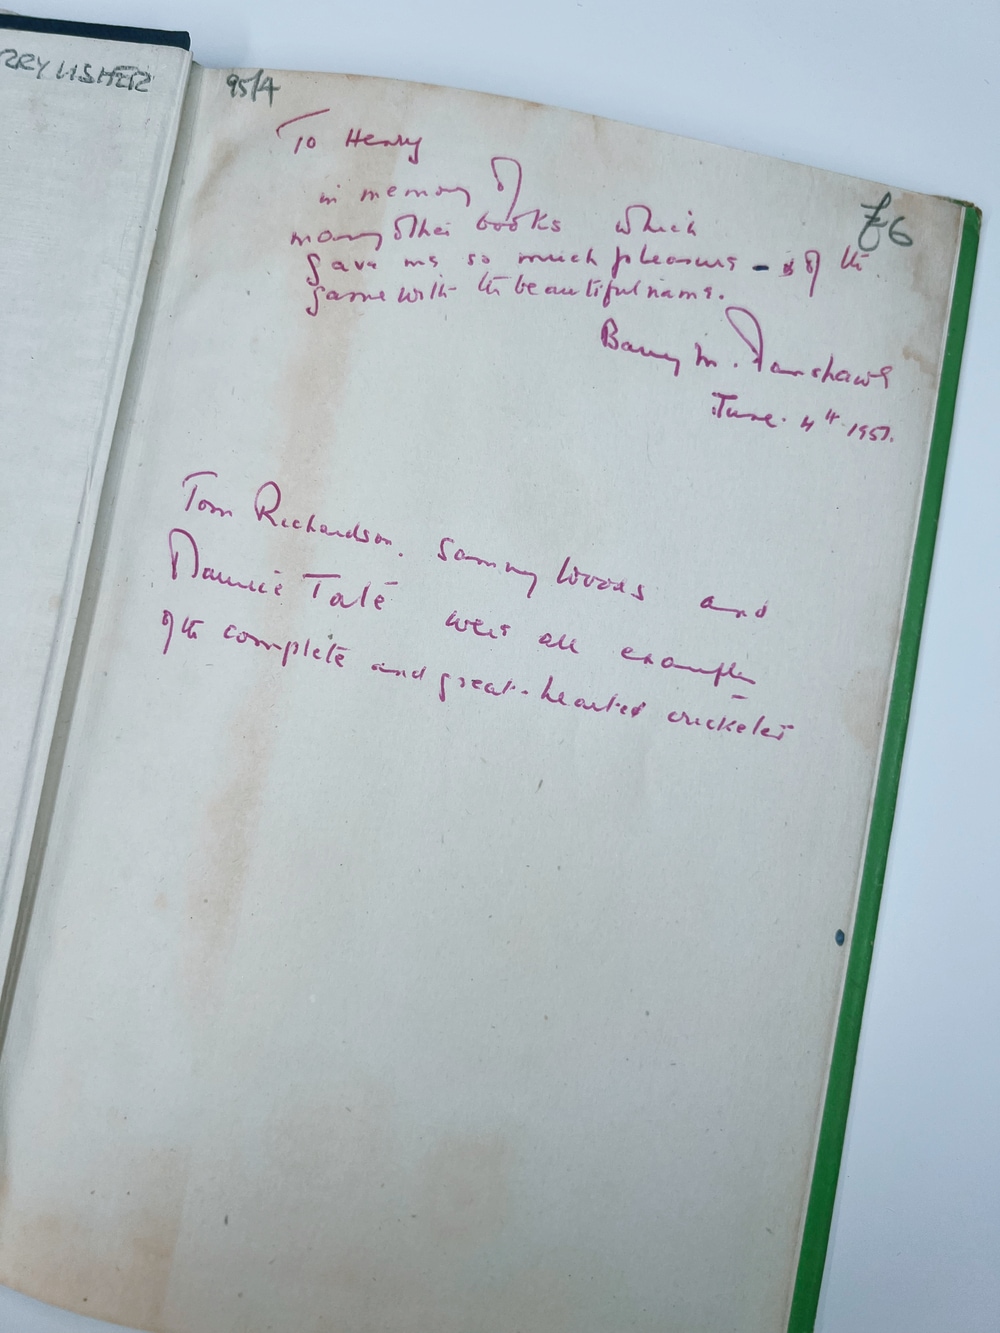 RRY USHER
95/4
£6
To Henry
in memory of
many other books which
gave me so much pleasure - of the
game with the beautiful name.
Barry M. Fanshawe
June. 4th 1951.
Tom Richardson. Sammy Woods and
Maurice Tate were all examples
of the complete and great-hearted cricketer